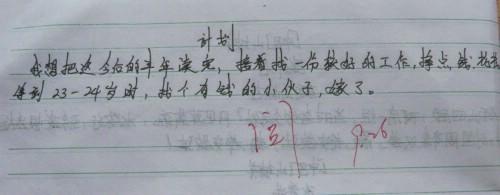 计划
我想把这今后的半年读完，接着找一份较好的工作，挣点钱，
等到23-24岁时，找个有钱的小伙子，嫁了。
9.26